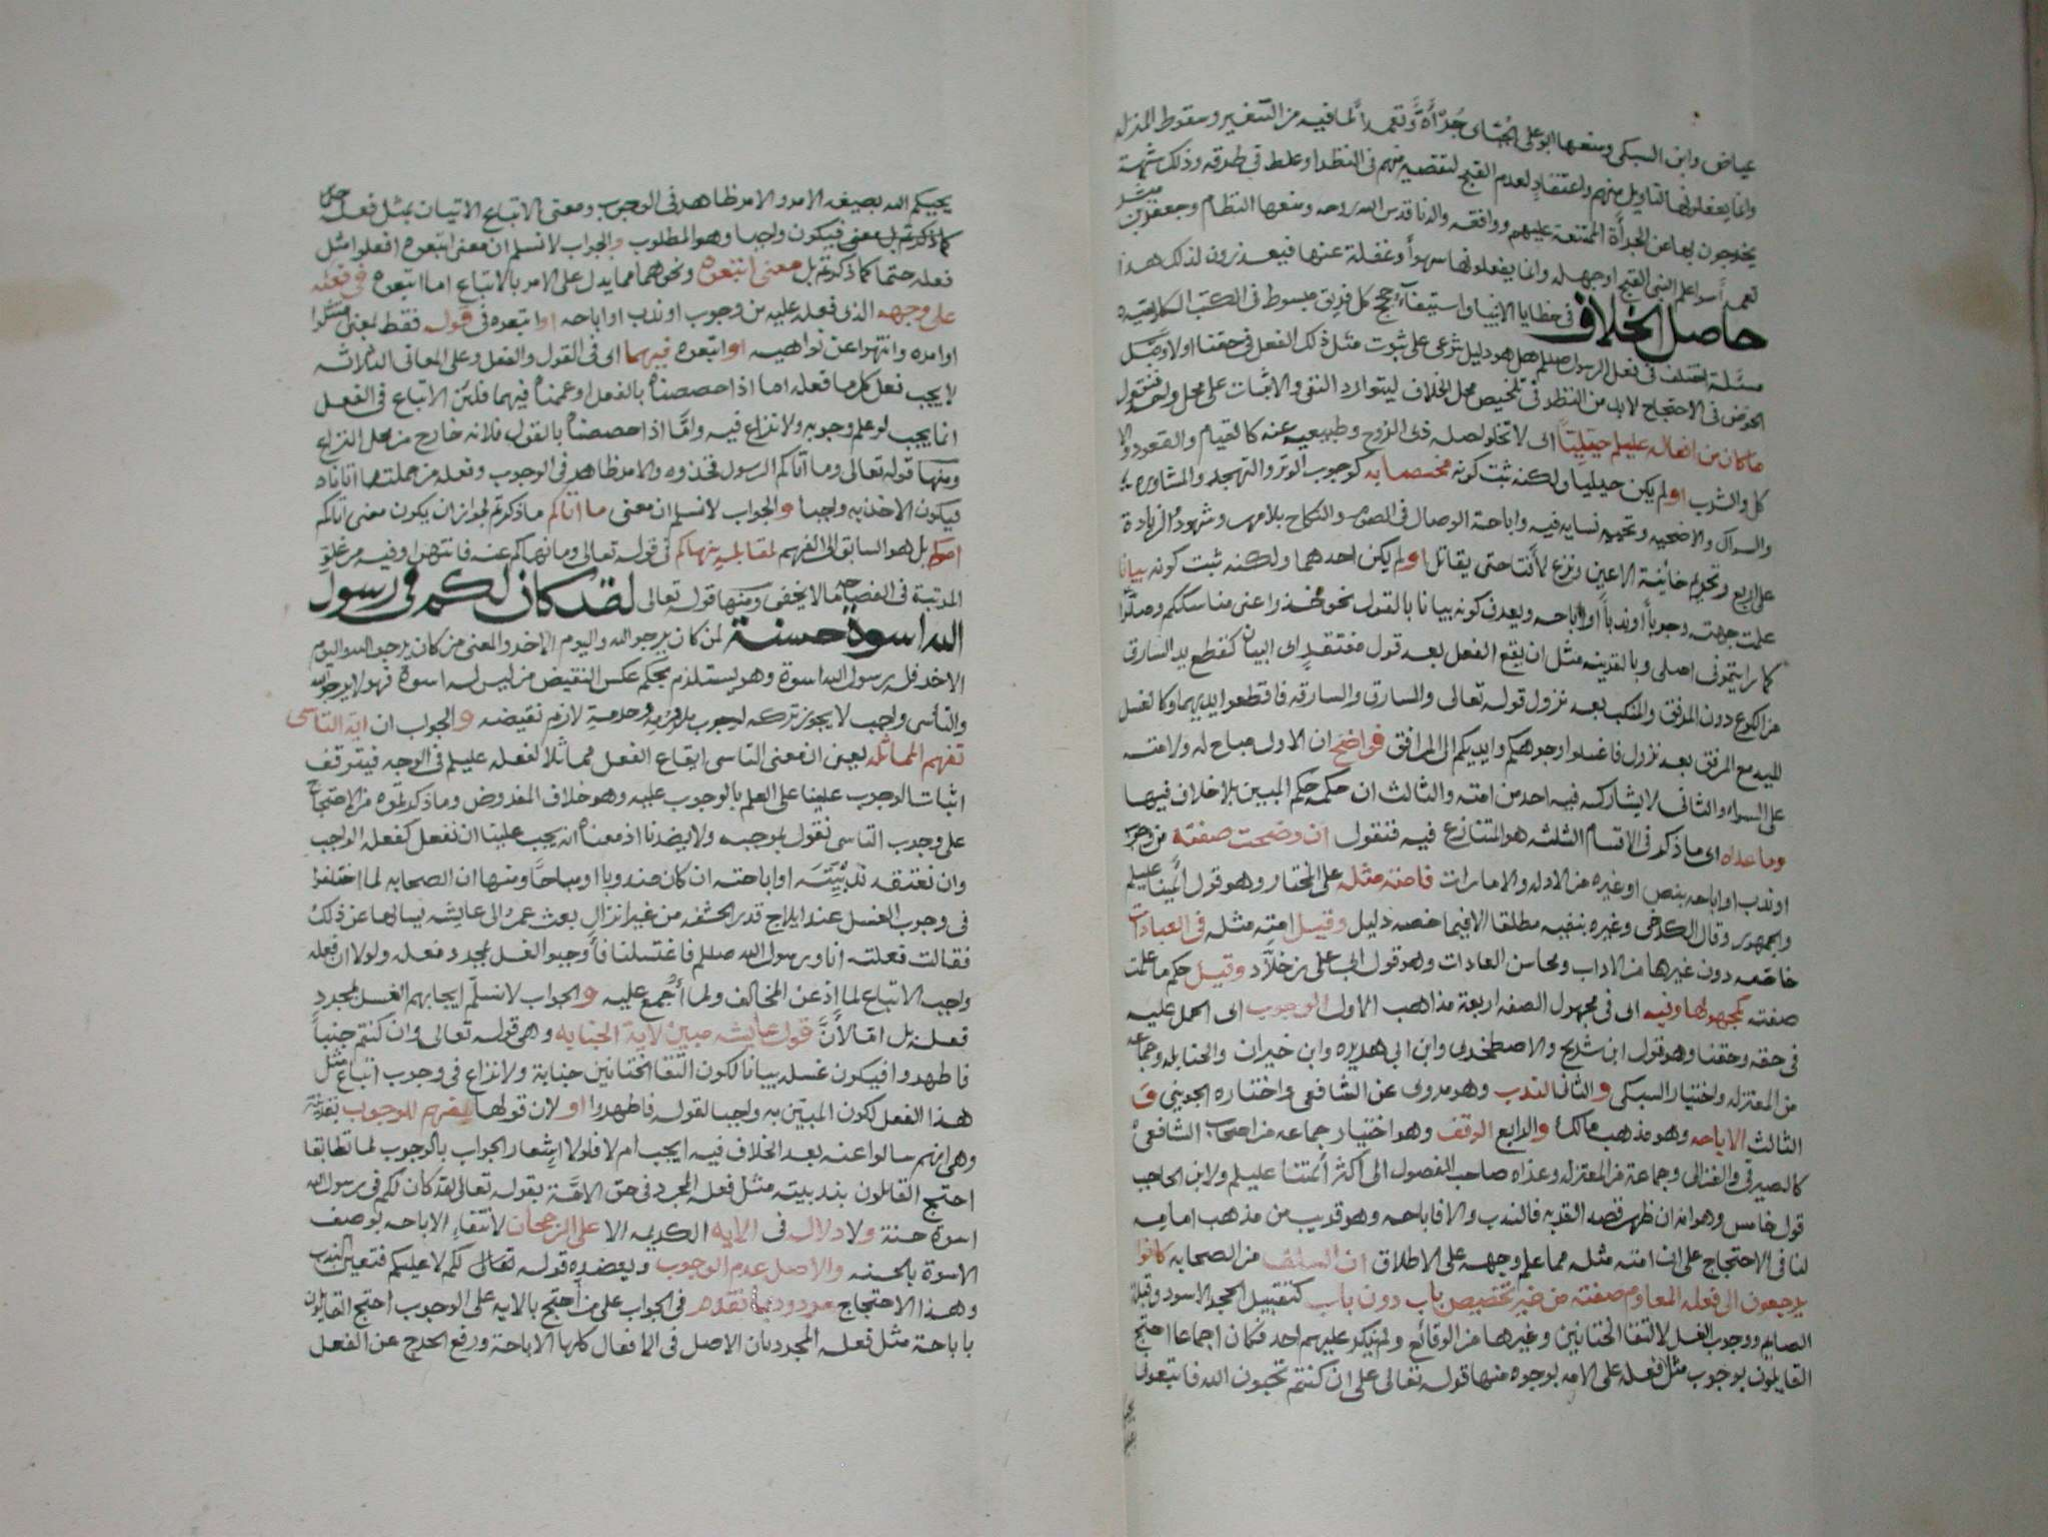 عياض وابن السبكي ومنعها ابو علي الجبائي جُرْأَةً وتعمدًا لما فيه من التنفير وسقوط المنزله
وانما يفعلونها لتاويل منهم واعتقادٍ لعدم القبح لتقصير منهم في النظر او غلط في طريقه وذلك شبهة
يخرجون بها عن الجرأة الممتنعة عليهم ووافقه والدنا قدس الله روحه ومنعها النظام وجعفر بن مبشر
تعمدًا سوا علم النبي القبح او جهله وانما يفعلونها سهوًا وغفلة عنها فيعذرون لذلك هذا
حاصل الخلاف في خطايا الانبيا واستيفآء حجج كل فريق مبسوط في الكتب الكلاميه
مسئلة اختلف في فعل الرسول صللم هل هو دليل شرعي على ثبوت مثل ذلك الفعل في حقنا او لا وقبل
الخوض في الاحتجاج لا بد من النظر في تلخيص محل الخلاف ليتوارد النفي والاثبات على محل واحد فنقول
ما كان من افعاله عليلم جبليًا اي لا تخلو اصله ذي الروح وطبيعيه عنه كالقيام والقعود والا
كل والشرب او لم يكن جبليا ولكنه ثبت كونه مختصا به كوجوب الوتر والتهجد والمشاوره
والسواك والاضحيه وتخييره نسايه فيه واباحة الوصال في الصوم والنكاح بلا مهر وشهود والزيادة
على اربع وتحريم خائنة الاعين ونزع لأمته حتى يقاتل او لم يكن احدهما ولكنه ثبت كونه بيانا
علمت جهته وجوبا او ندباً او اباحه ويعرف كونه بيانا بالقول نحو خذوا عني مناسككم وصلّوا
كما رايتموني اصلي وبالقرينه مثل ان يقع الفعل بعد قول مفتقرٍ الى البيان كقطع يد السارق
من الكوع دون المرفق والمنكب بعد نزول قوله تعالى والسارق والسارقه فاقطعوا ايديهما وكالغسل
لليد مع المرفق بعد نزول فاغسلوا وجوهكم وايديكم الى المرافق فواضح ان الاول مباح له ولامته
على السوا والثاني لا يشاركه فيه احد من امته والثالث ان حكمه حكم المبين بلا خلاف فيها
وما عداه اي ما ذكر في الاقسام الثلثه هو المتنازع فيه فنقول ان وضحت صفته من وجوب
او ندب او اباحه بنص او غيره من الادله والامارات فامته مثله على المختار وهو قول ائمتنا عليلم
والجمهور وقال الكرخي وغيره بنفيه مطلقا الا فيما خصه دليل وقيل امته مثله في العبادات
خاصه دون غيرها من الاداب ومحاسن العادات وهو قول ابي علي بن خلاّد وقيل حكم ما علمت
صفته كمجهولها وفيه اي في مجهول الصفه اربعة مذاهب الاول الوجوب اي الحمل عليه
في حقه وحقنا وهو قول ابن شريح والاصطخري وابن ابي هريره وابن خيران والحنابله وجماعه
من المعتزله واختيار السبكي والثاني الندب وهو مروي عن الشافعي واختاره الجويني و
الثالث الاباحه وهو مذهب مالك والرابع الوقف وهو اختيار جماعه من اصحاب الشافعي
كالصيرفي والغزالي وجماعة من المعتزله وعزاه صاحب الفصول الى أكثر أئمتنا عليلم ولابن الحاجب
قول خامس وهو انه ان ظهر قصد القربه فالندب والا فاباحه وهو قريب من مذهب اماميه
لنا في الاحتجاج على ان امته مثله مما علم وجهه على الاطلاق ان السلف من الصحابه كانوا
يرجعون الى فعله المعلوم صفته من غير تخصيص باب دون باب كتقبيل الحجر الاسود وقبلة
الصايم ووجوب الغسل لالتقا الختانين وغيرها من الوقائع ولم ينكر عليهم احد فكان اجماعا احتج
القايلون بوجوب مثل فعله على الامه بوجوه منها قوله تعالى على ان كنتم تحبون الله فاتبعوني
يحببكم الله بصيغه الامر والامر ظاهر في الوجوب ومعنى الاتباع الاتيان بمثل فعله
فيكون واجبا وهو المطلوب والجواب لا نسلم ان معنى اتبعوه افعلوا مثل
فعله حتما كما ذكرتم بل معنى اتبعوه ونحوهما مما يدل على الامر بالاتباع اما اتبعوه في فعله
على وجهه الذي فعله عليه من وجوب او ندب او اباحه او اتبعوه في قوله فقط بمعنى امتثلوا
اوامره وانتهوا عن نواهيه او اتبعوه فيهما اي في القول والفعل وعلى المعاني الثلاثه
لا يجب فعل كل ما فعله اما اذا خصصناه بالفعل او عممناه فيهما فلان الاتباع في الفعل
انما يجب لو علم وجوبه ولا نزاع فيه وامَّا اذا خصصناه بالقول فلانه خارج من محل النزاع
ومنها قوله تعالى وما آتاكم الرسول فخذوه والامر ظاهر في الوجوب وفعله من جملتها اتانا به
فيكون الاخذ به واجبا والجواب لا نسلم ان معنى ما اتاكم ما ذكرتم لجواز ان يكون معنى اتاكم
امركم بل هو السابق الى الفهم لمقابلة نهاكم في قوله تعالى وما نهاكم عنه فانتهوا وفيه من علو
المرتبة في الفصاحه ما لا يخفى ومنها قوله تعالى لقد كان لكم في رسول
الله اسوة حسنة لمن كان يرجو الله واليوم الاخر والمعنى من كان يرجو الله واليوم
الاخر فله برسول الله اسوة وهو يستلزم بحكم عكس النقيض من ليس له اسوة فهو لا يرجو الله
والتأسي واجب لا يجوز تركه لوجوب ملزومه وحرمة لازم نقيضه والجواب ان اية التاسي
تفهم المماثله يعني ان معنى التاسي ايقاع الفعل مماثلا لفعله عليلم في الوجه فيتوقف
اثبات الوجوب علينا على العلم بالوجوب عليه وهو خلاف المفروض وما ذكرتموه من الاحتجاج
على وجوب التاسي نقول بموجبه ولا يضرنا اذ معناه انه يجب علينا ان نفعل كفعله الواجب
وان نعتقد ندبيّته او اباحته ان كان مندوبا او مباحًا ومنها ان الصحابه لما اختلفوا
في وجوب الغسل عند ايلاج قدر الحشفه من غير انزال بعث عمر الى عايشه يسالها عن ذلك
فقالت فعلته انا ورسول الله صللم فاغتسلنا فأوجبوا الغسل لمجرد فعله ولولا ان فعله
واجب الاتباع لما اذعن المخالف ولما أُجمع عليه والجواب لا نسلّم ايجابهم الغسل لمجرد
فعله بل اما لأنَّ قول عايشه مبين لاية الجنابه وهي قوله تعالى وان كنتم جنباً
فاطهروا فيكون غسله بيانا لكون التقا الختانين جنابة ولا نزاع في وجوب اتباع مثل
هذا الفعل لكون المبيّن به واجبا لقوله فاطهروا او لان قولها يفهم للوجوب بقرينه
وهي انهم سالوا عنه بعد الخلاف فيه ايجب ام لا فلولا اشعار الجواب بالوجوب لما تطابقا
احتج القائلون بندبيته مثل فعله المجرد في حق الامّة بقوله تعالى لقد كان لكم في رسول الله
اسوة حسنة ولا دلاله في الايه الكريمه الا على الرجحان لانتفاء الاباحه بوصف
الاسوة بالحسنه والاصل عدم الوجوب ويعضده قوله تعالى لكم لا عليكم فتعين الندب
وهذا الاحتجاج مردود بما تقدم في الجواب على من احتج بالايه على الوجوب احتج القايلون
باباحة مثل فعله المجرد بان الاصل في الافعال كلها الاباحة ورفع الحرج عن الفعل